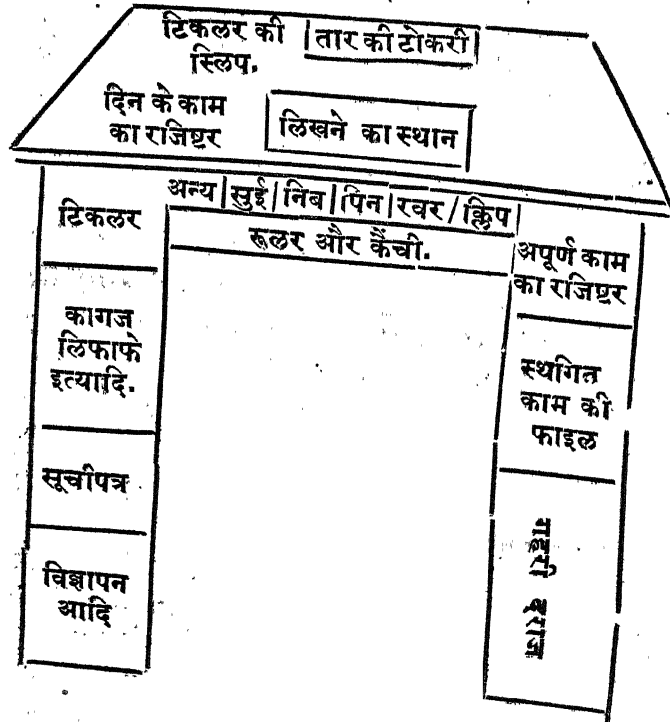 टिकलर की |तार की टोकरी|
स्लिप.
दिन के काम
का रजिष्टर
लिखने का स्थान
अन्य|सुई|निब|पिन|रबर/क्लिप|
रूलर और कैंची.
टिकलर
कागज
लिफाफे
इत्यादि.
सूचीपत्र
विज्ञापन
आदि
अपूर्ण काम
का रजिष्टर
स्थगित
काम की
फाइल
गहरी दराज